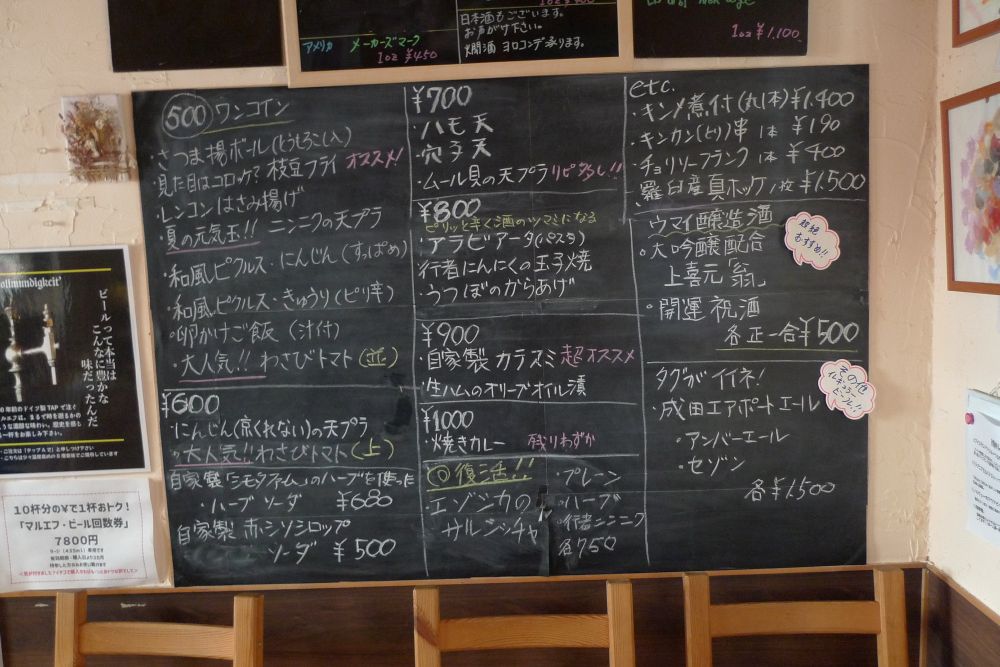 アメリカ メーカーズマーク
1oz ¥450
日本酒もございます。
お声がけ下さい。
燗酒 ヨロコンデ承ります。
1oz ¥1,100
500 ワンコイン
・さつま揚ボール(とうもろこし入)
・見た目はコロッケ? 枝豆フライ オススメ!
・レンコンはさみ揚げ
・夏の元気玉!! ニンニクの天プラ
・和風ピクルス・にんじん(すっぱめ)
・和風ピクルス・きゅうり(ピリ辛)
・卵かけご飯 (汁付)
・大人気!! わさびトマト(並)
¥600
・にんじん(京くれない)の天プラ
・大人気!! わさびトマト(上)
自家製「シモタファーム」のハーブを使った
・ハーブソーダ ¥680
自家製 赤シソシロップ
ソーダ ¥500
¥700
・ハモ天
・穴子天
・ムール貝の天プラ リピ多し!!
¥800
ピリッと辛く酒のツマミになる
・アラビアータ(パスタ)
・行者にんにくの玉子焼
・うつぼのからあげ
¥900
・自家製 カラスミ 超オススメ
・生ハムのオリーブオイル漬
¥1000
・焼きカレー 残りわずか
◎復活!!
・エゾジカの
サルシッチャ
・プレーン
・ハーブ
・行者ニンニク
各750
etc.
・キンメ煮付(丸1本) ¥1.400
・キンカン(とり)串 1本 ¥190
・チョリソーフランク 1本 ¥400
・羅臼産真ホッケ 1枚 ¥1.500
ウマイ醸造酒
・大吟醸配合
上喜元「翁」
・開運 祝酒
各正一合 ¥500
超絶
おすすめ!!
タグがイイネ!
・成田エアポートエール
・アンバーエール
・セゾン
各 ¥1,500
その他
イレギュラー
ビール!!
ビールって本当は
こんなに豊かな
味だったんだ
10杯分の¥で1杯おトク!
「マルエフ・ビール回数券」
7800円